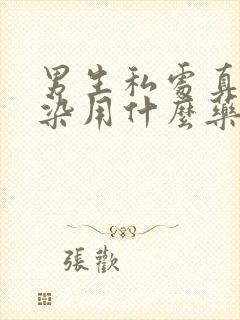 男生私處真
染用什麼藥
張歡